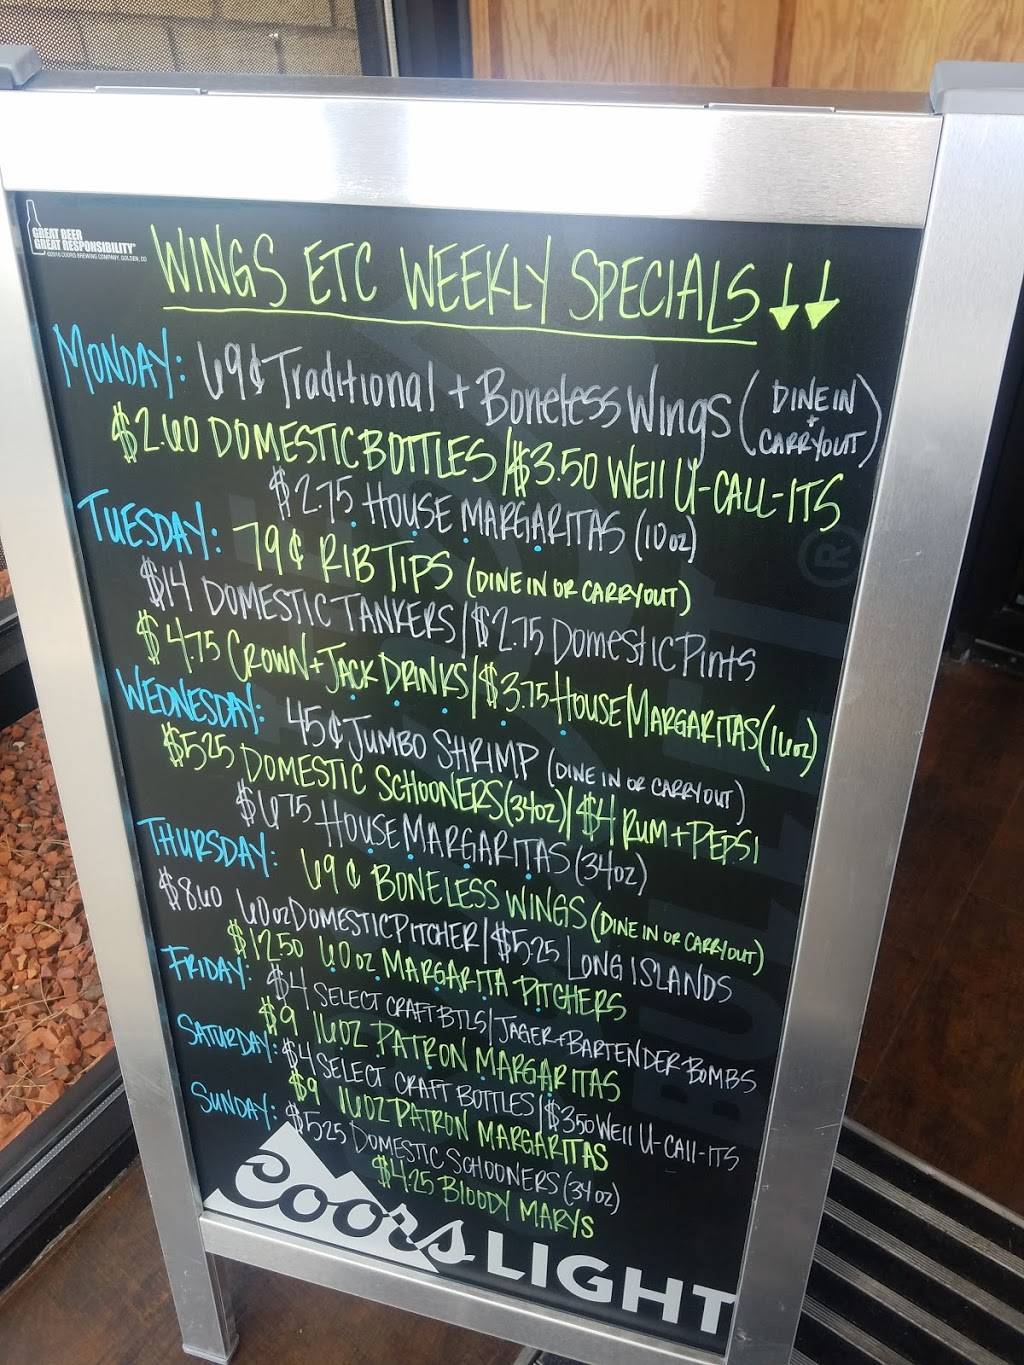 GREAT BEER
GREAT RESPONSIBILITY®
©2016 COORS BREWING COMPANY, GOLDEN, CO
WINGS ETC WEEKLY SPECIALS ↓↓
MONDAY: 69¢ Traditional + Boneless Wings (DINE IN + CARRYOUT)
$2.60 DOMESTIC BOTTLES / $3.50 WEll U-CALL-ITS
$2.75 HOUSE MARGARITAS (10oz)
TUESDAY: 79¢ RIB TIPS (DINE IN OR CARRYOUT)
$14 DOMESTIC TANKERS / $2.75 DOMESTIC Pints
$4.75 CROWN + JACK DRINKS / $3.75 HOUSE MARGARITAS (16oz)
WEDNESDAY: 45¢ JUMBO SHRIMP (DINE IN OR CARRYOUT)
$5.25 DOMESTIC SCHOONERS (34oz) / $4 RUM + PEPSI
$6.75 HOUSE MARGARITAS (34oz)
THURSDAY: 69¢ BONELESS WINGS (DINE IN OR CARRYOUT)
$8.60 60oz DOMESTIC PITCHER / $5.25 LONG ISLANDS
$12.50 60oz MARGARITA PITCHERS
FRIDAY: $4 SELECT CRAFT BTLS / JAGER + BARTENDER BOMBS
$9 16oz PATRON MARGARITAS
SATURDAY: $4 SELECT CRAFT BOTTLES / $3.50 WEll U-CAll-ITS
$9 16oz PATRON MARGARITAS
SUNDAY: $5.25 DOMESTIC SCHOONERS (34oz)
$4.25 BLOODY MARYS
Coors LIGHT
BULLET®